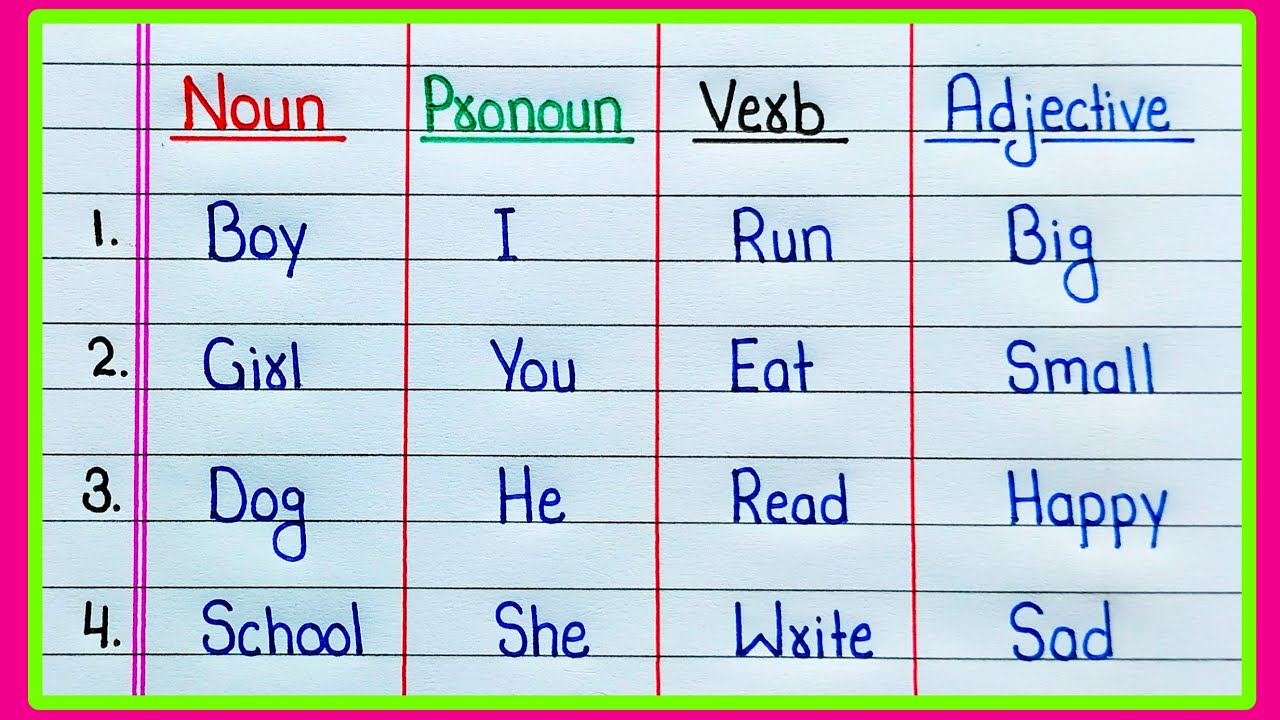 Noun Pronoun Verb Adjective
1. Boy I Run Big
2. Girl You Eat Small
3. Dog He Read Happy
4. School She Write Sad